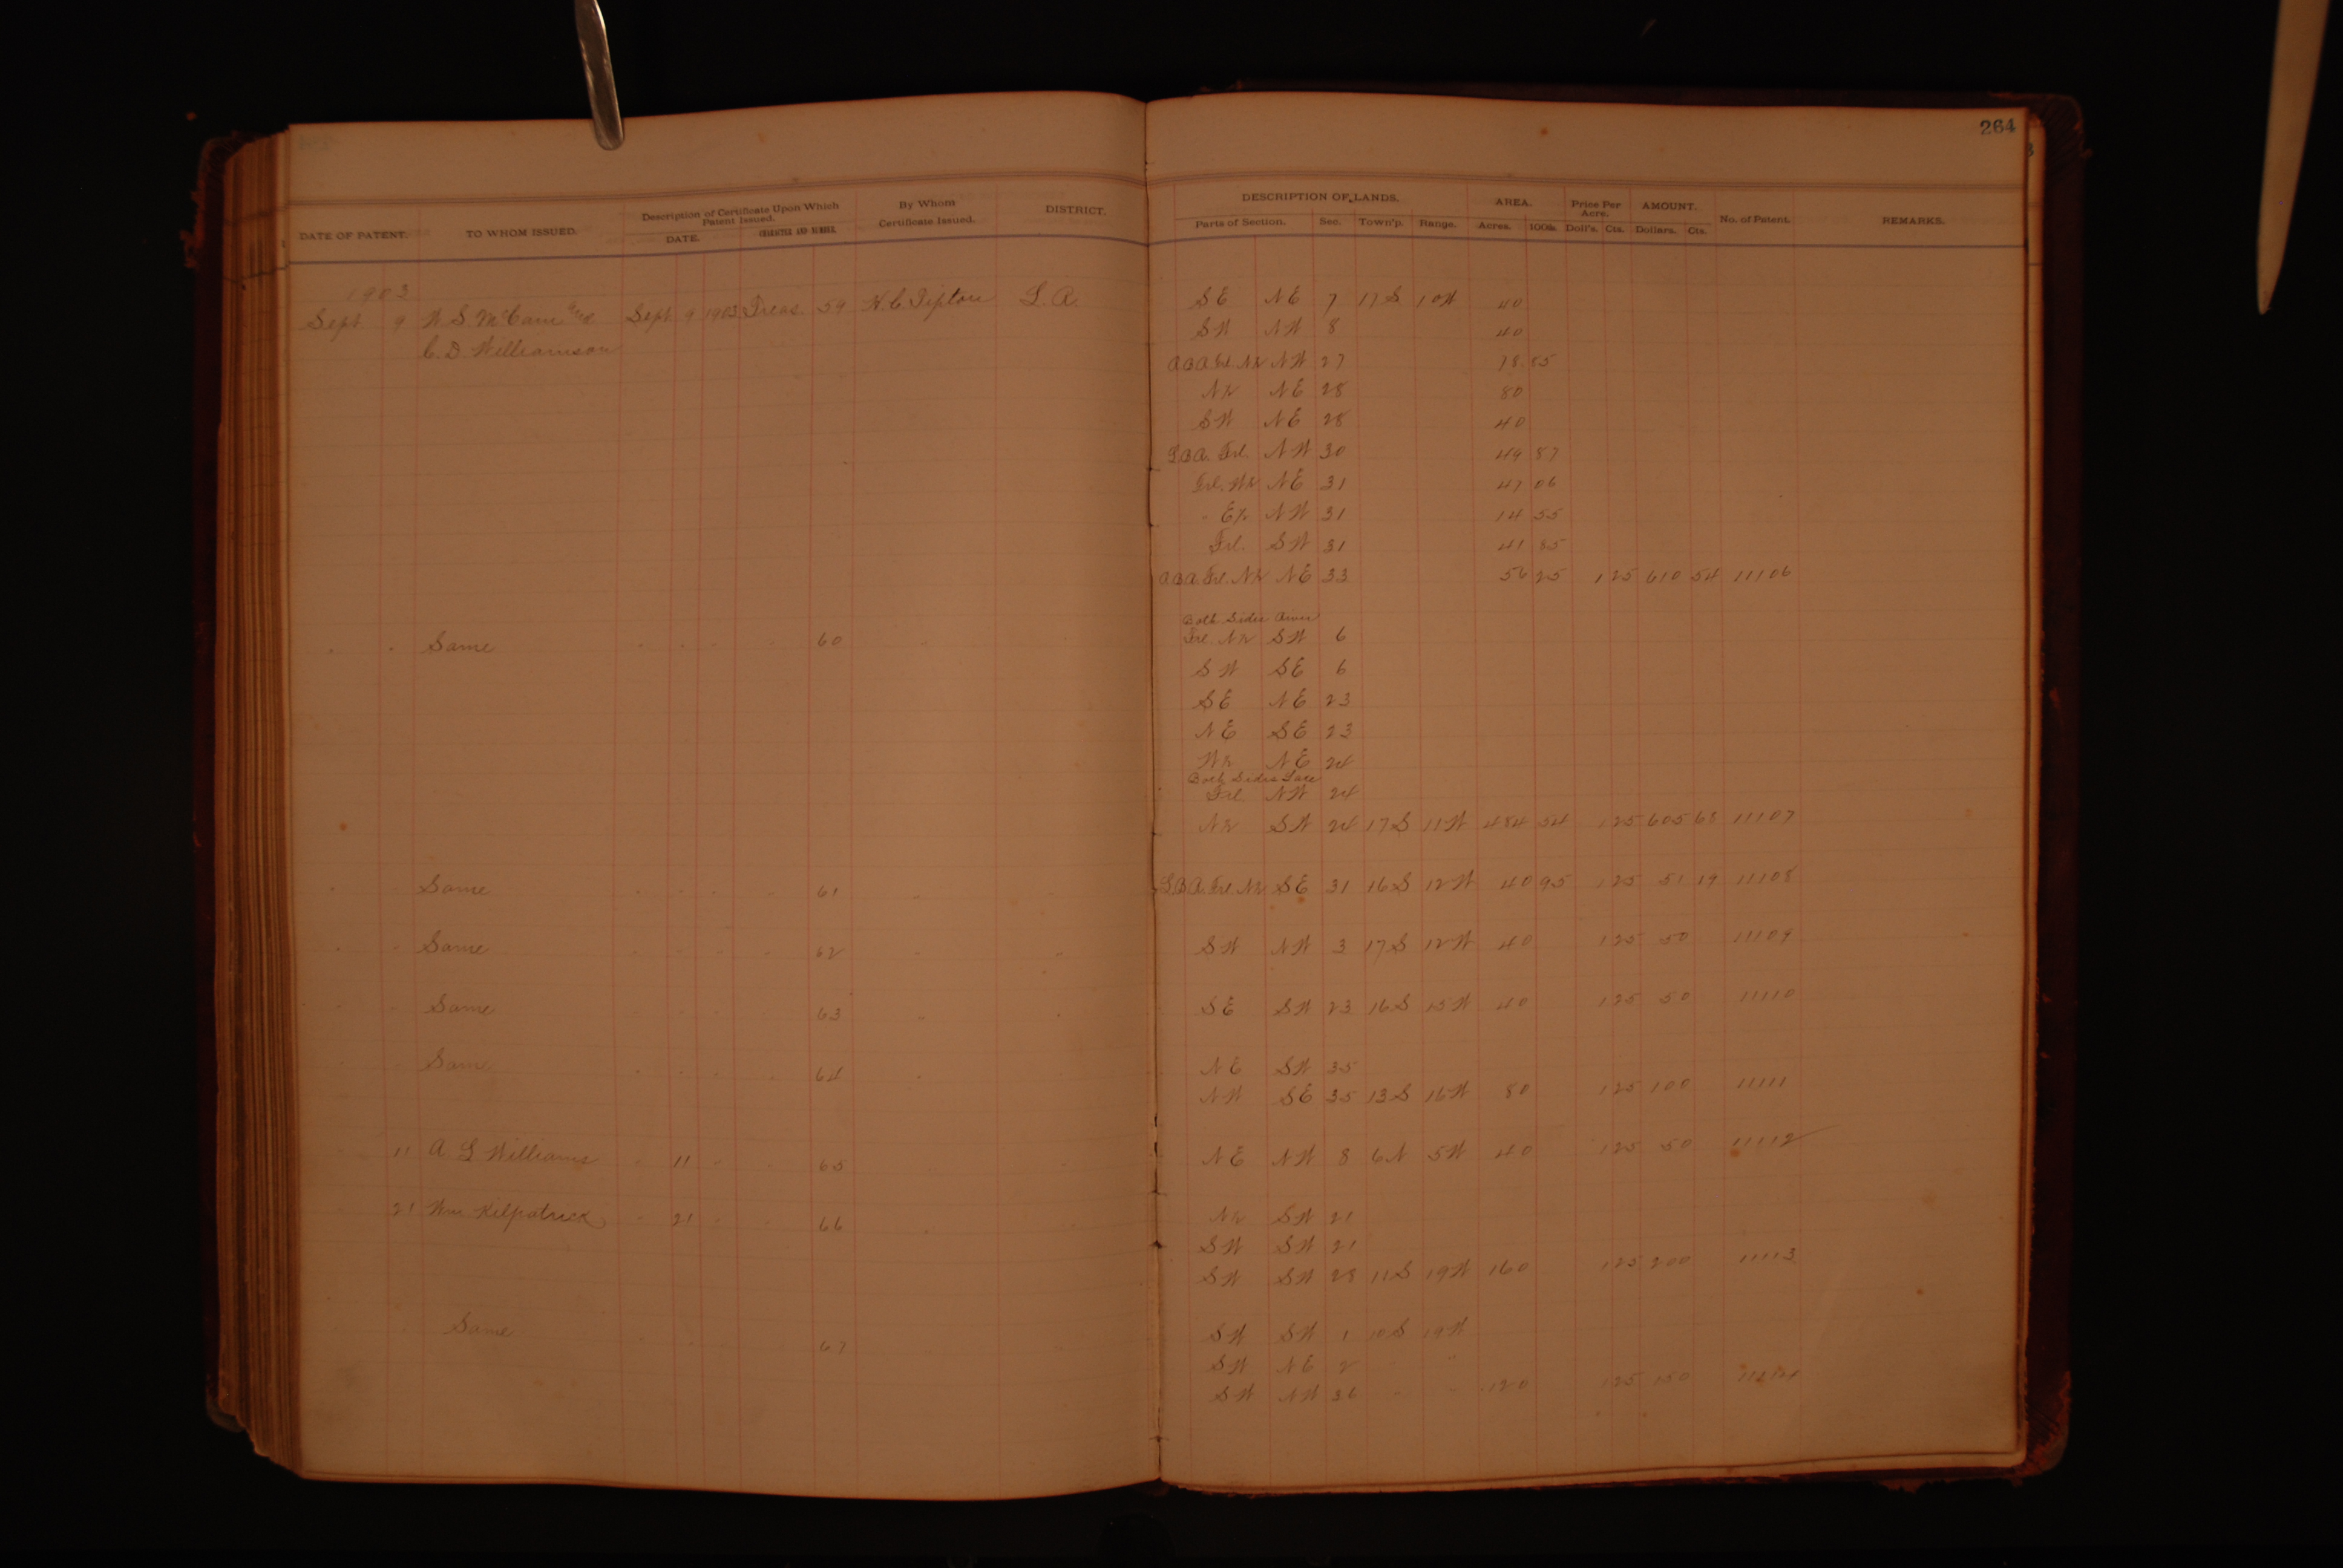 264
DATE OF PATENT. TO WHOM ISSUED. Description of Certificate Upon Which Patent Issued. DATE. CHARACTER AND NUMBER. By Whom Certificate Issued. DISTRICT. DESCRIPTION OF LANDS. Parts of Section. Sec. Town'p. Range. AREA. Acres. 100ths. Price Per Acre. Doll's. Cts. AMOUNT. Dollars. Cts. No. of Patent. REMARKS.
1903
Sept 9 W. S. McCain and Sept 9 1903 Treas. 59 H. C. Tipton L. R. SE NE 7 17S 10W 40
C. D. Williamson SW NW 8 40
Frl. N½ NW 27 78 85
N½ NE 28 80
SW NE 28 40
Frl. NW 30 49 87
Frl. W½ NE 31 47 06
" E½ NW 31 14 55
Frl. SW 31 41 85
Frl. N½ NE 33 56 25 1 25 610 54 11106
Both Sides River
" " Same " " " " 60 " Frl. N½ SW 6
SW SE 6
SE NE 23
NE SE 23
W½ NE 24
Both Sides Lake
Frl. NW 24
N½ SW 24 17S 11W 484 54 1 25 605 68 11107
" " Same " " " " 61 " " Frl. N½ SE 31 16S 12W 40 95 1 25 51 19 11108
" " Same " " " " 62 " " SW NW 3 17S 12W 40 1 25 50 11109
" " Same " " " " 63 " " SE SW 23 16S 15W 40 1 25 50 11110
" " Same " " " " 64 " " NE SW 35
NW SE 35 13S 16W 80 1 25 100 11111
" 11 A. L. Williams " 11 " " 65 " " NE NW 8 6N 5W 40 1 25 50 11112
" 21 Wm. Kilpatrick " 21 " " 66 " " N½ SW 21
SW SW 21
SW SW 28 11S 19W 160 1 25 200 11113
Same 67 " SW SW 1 10S 19W
SW NE 2 " "
SW NW 36 " " 120 1 25 150 11114